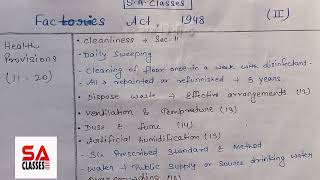 S.A. Classes
Factories Act 1948 (II)
Health Provisions (11-20)
• Cleanliness → Sec. 11
- Daily Sweeping
- Cleaning of floor once in a week with disinfectant.
- All → repainted or refurnished → 5 years.
• Dispose waste → Effective arrangements (12)
• Ventilation & Temprature (13)
• Dust & fume (14)
• Artificial humidification (15)
- SG Prescribed standard & Method
- Water → Public Supply or Source drinking water
SA
CLASSES